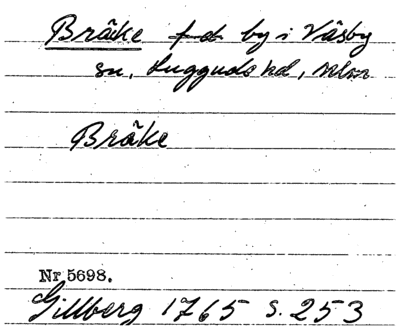 Bräke f.d. by i Väsby
sn, Luggude hd, Mlm
Bräke
Nr 5698.
Gillberg 1765 s. 253